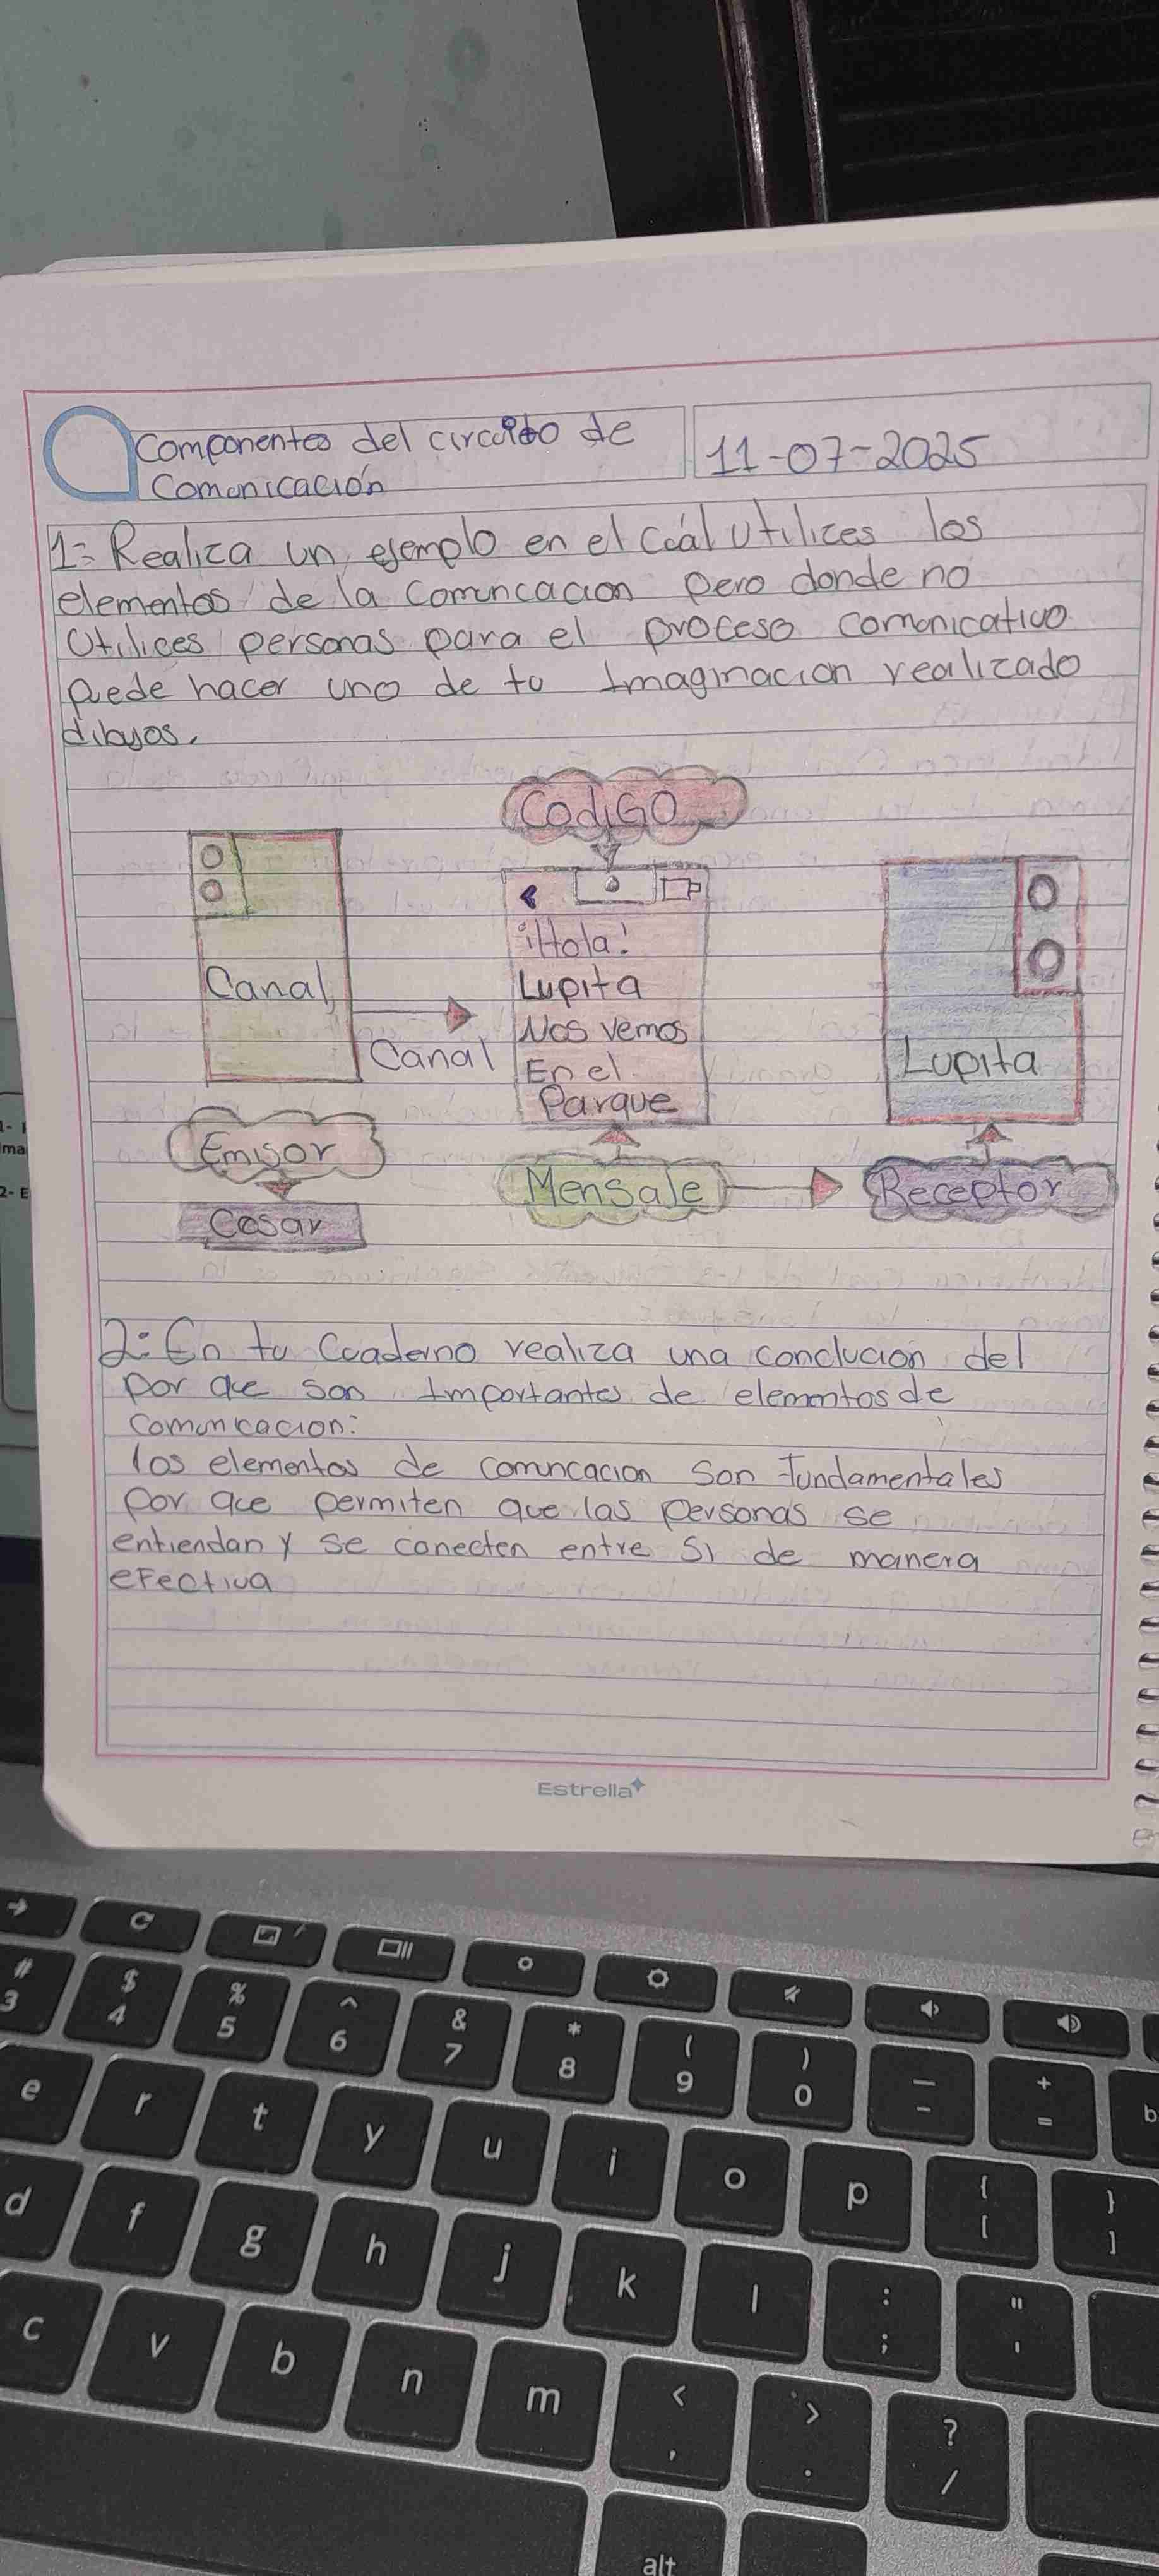 Componentes del circuito de
Comonicación
11-07-2025
1= Realiza un ejemplo en el Cuál utilices los
elementos de la Comuncacion pero donde no
Utilices personas para el proceso comonicativo
puede hacer uno de tu Imaginacion realizado
dibujos.
CodiGO
¡Hola!
Lupita
Nos vemos
En el
Parque
Canal
Canal
Lupita
Emisor
Cesar
Mensale
Receptor
2: En tu Cuaderno realiza una conclucion del
por que son Importantes de elementos de
comunicacion:
los elementos de comuncacion son fundamentales
por que permiten que las personas se
entiendan y se conecten entre Si de manera
eFectiva
Estrella
1-
ma
2- E
# $ % ^ & * ( ) — +
3 4 5 6 7 8 9 0 - =
e r t y u i o p { [ } ]
d f g h j k l : ; " '
c v b n m < , > . ? /
alt